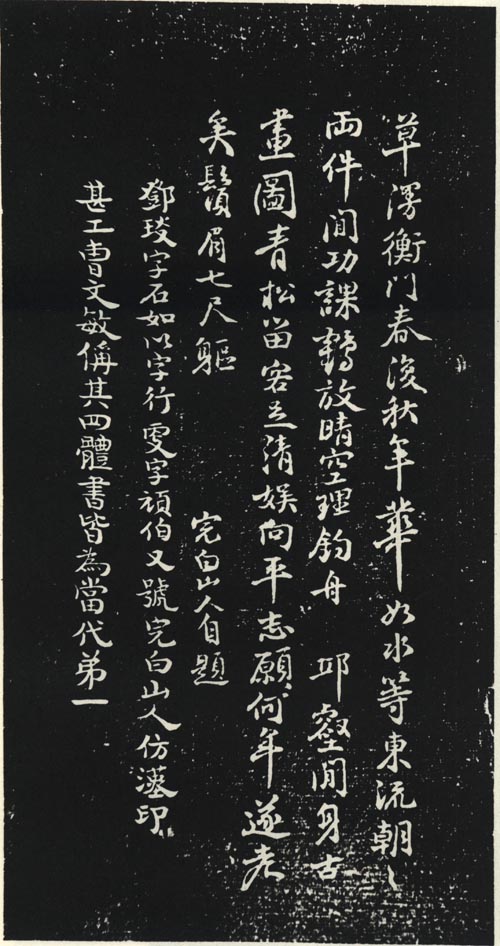 草漫衡門春復秋年華如水等東流朝〻
両件閒功課鶴放晴空理釣舟 邱壑閒身古
畫圖青松留客足清娱向平志願何年遂老
矣鬚眉七尺軀 完白山人自題
鄧琰字石如以字行更字頑伯又號完白山人仿漢印
甚工曹文敏偁其四體書皆為當代弟一